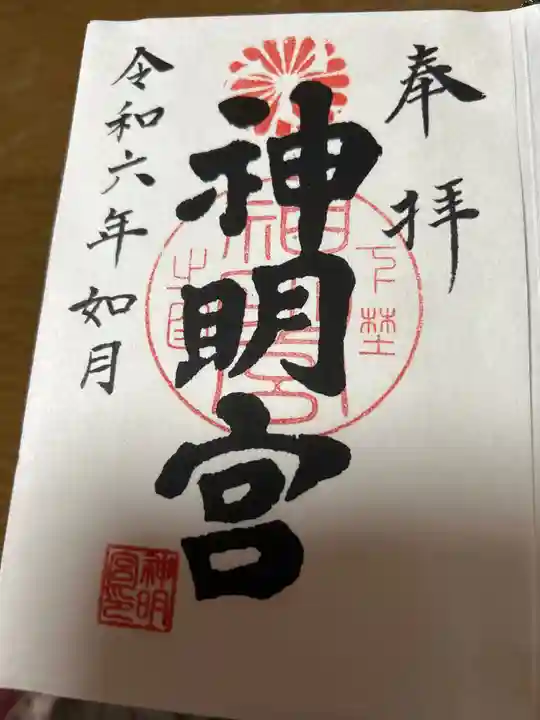 奉拝
神明宮
令和六年如月
下埜
神明
宮印